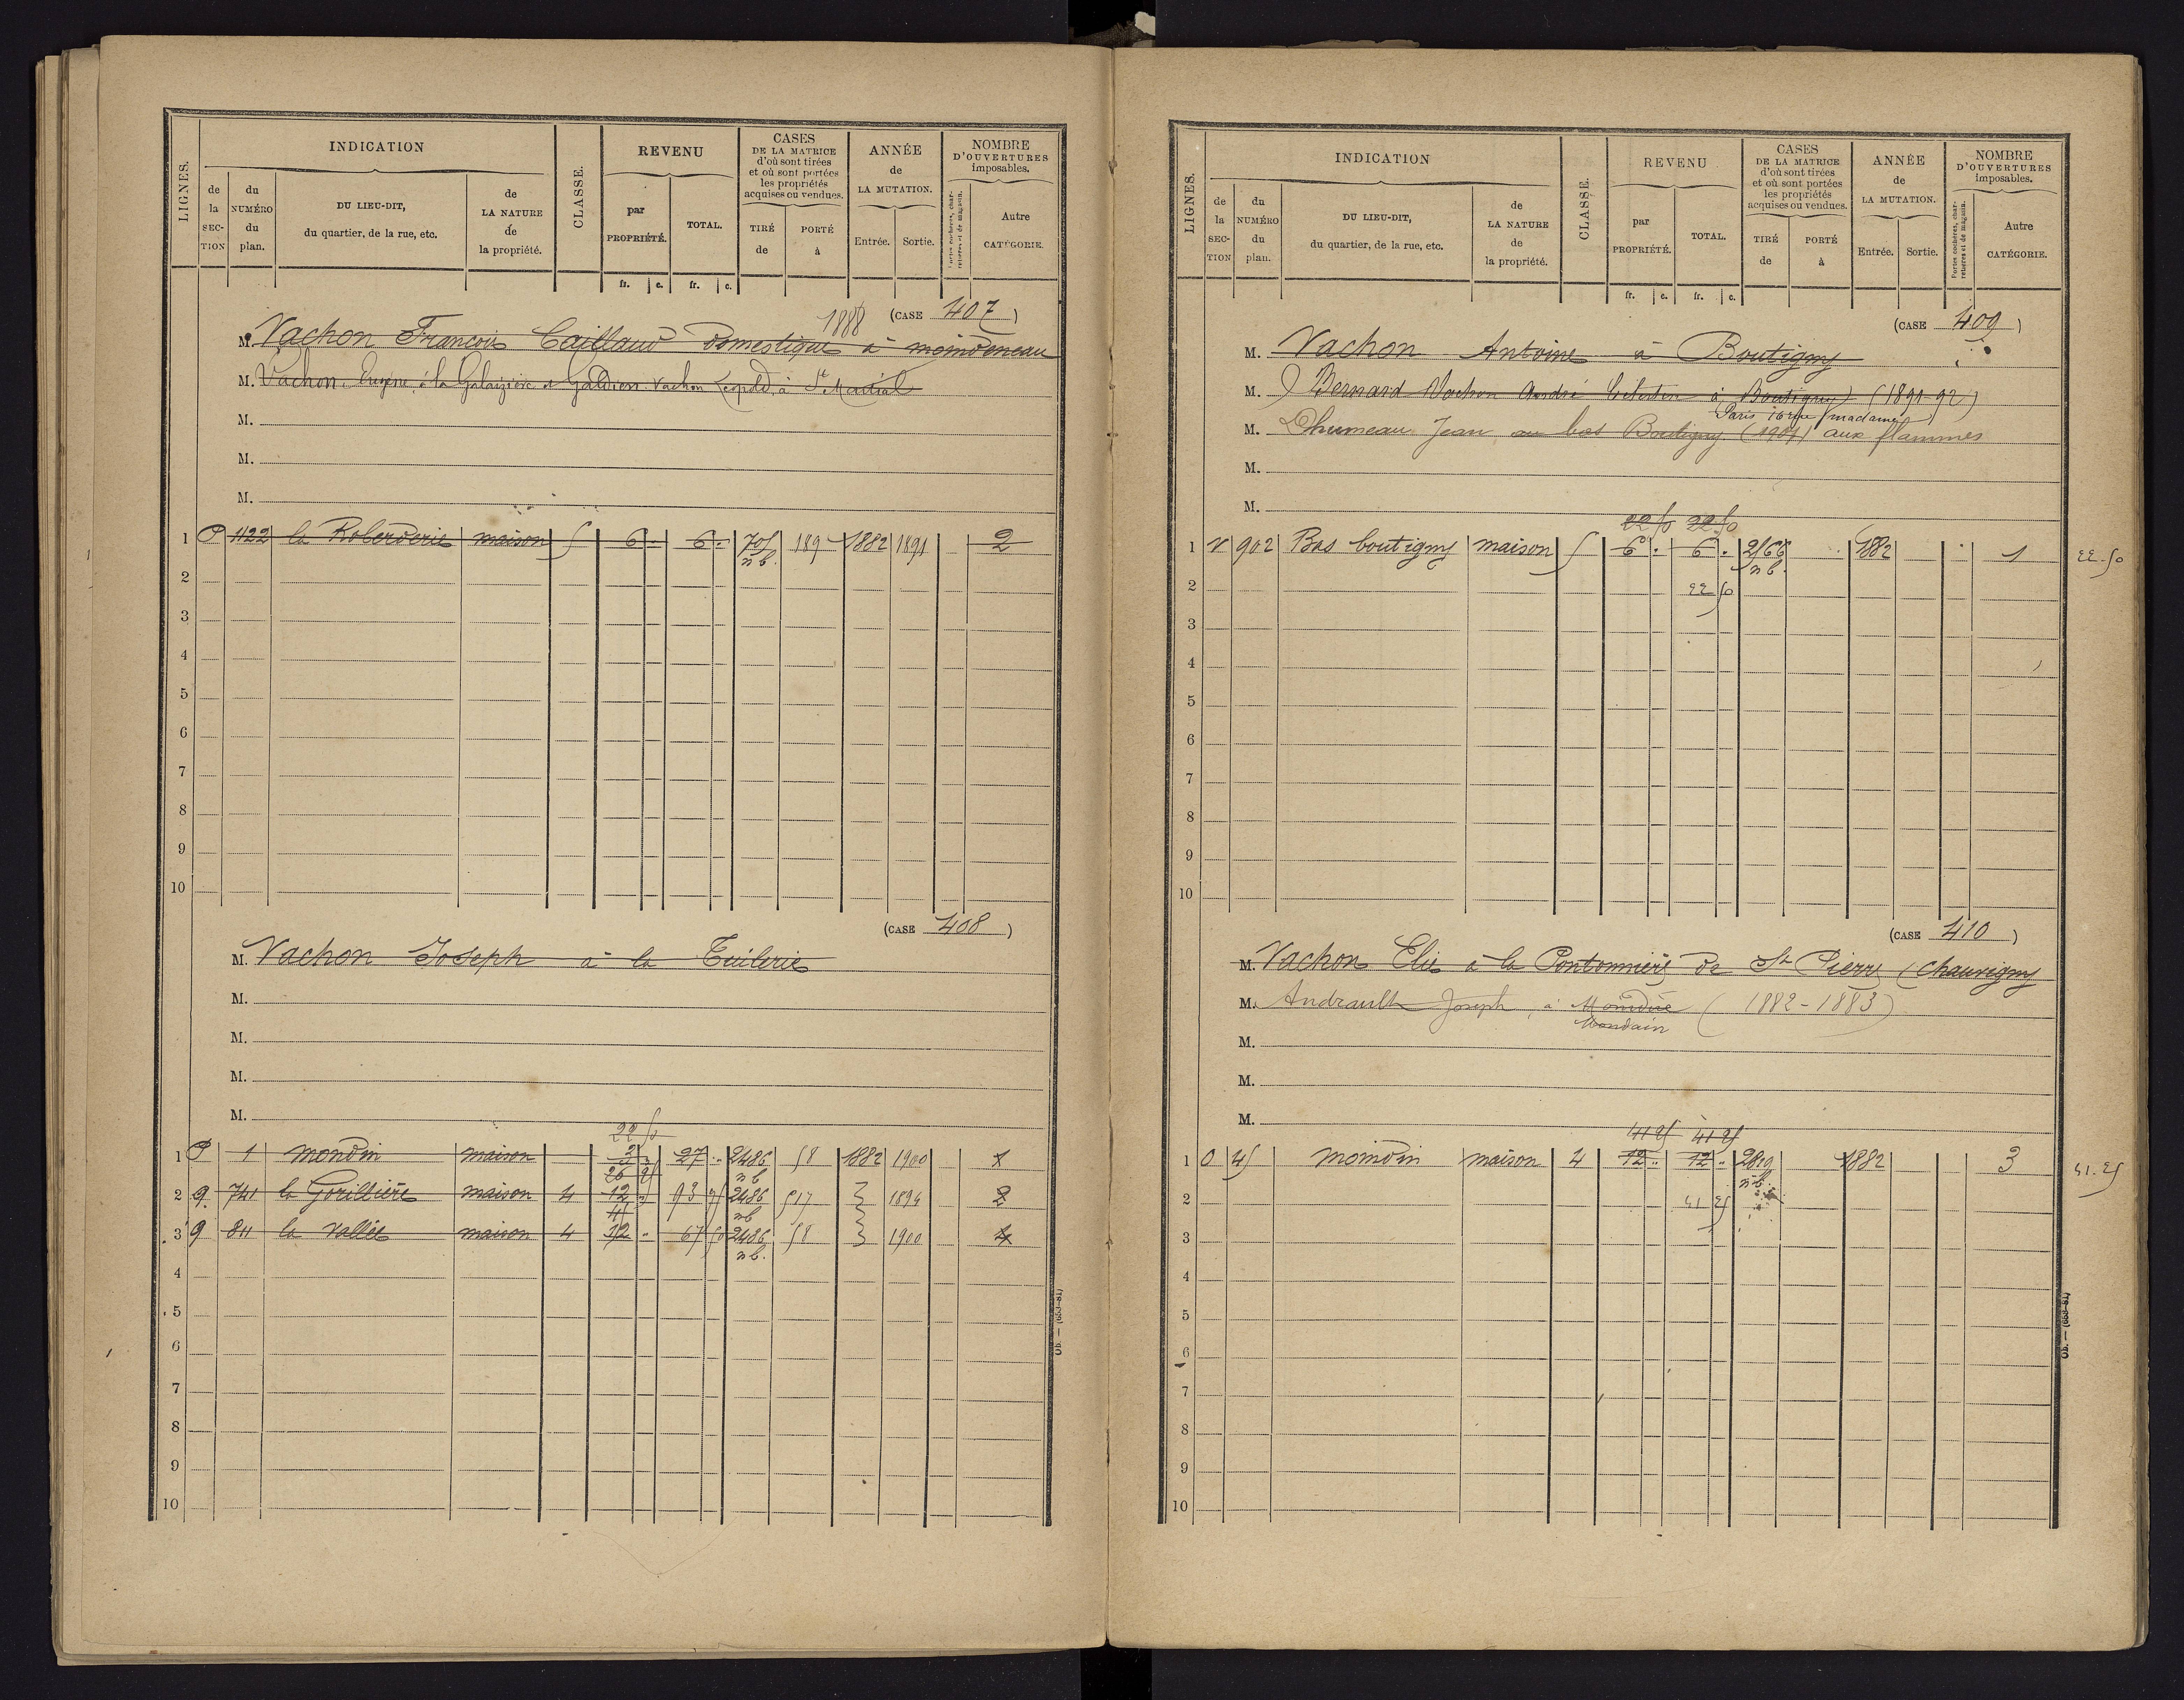 LIGNES.
INDICATION
de la SECTION
du NUMÉRO du plan.
DU LIEU-DIT, du quartier, de la rue, etc.
de LA NATURE de la propriété.
CLASSE.
REVENU
par PROPRIÉTÉ.
TOTAL.
fr. c. fr. c.
CASES DE LA MATRICE d'où sont tirées et où sont portées les propriétés acquises ou vendues.
TIRÉ de
PORTÉ à
ANNÉE de LA MUTATION.
Entrée. Sortie.
NOMBRE D'OUVERTURES imposables.
Portes cochères, charretières et de magasin.
Autre CATÉGORIE.
1888 (CASE 407)
M. Vachon François Caillaud domestique à moindeneau
M. Vachon Eugène, à la Galaizière et Galdien Vachon Léopold, à St Martial
M.
M.
M.
1 P 1122 la Roberderie maison 5 6 . 6 . 705 n.b. 189 1882 1891 2
2
3
4
5
6
7
8
9
10
(CASE 408)
M. Vachon Joseph à la Tuilerie
M.
M.
M.
M.
22 50
1 P 1 mondin maison 3 27 2486 n b 58 1882 1900 1
26 25
2 9. 741 la Gorillière maison 4 12 93 75 2486 nb 517 1894 2
41
3 9 811 la vallée maison 4 12 67 50 2486 n b. 58 1900 4
4
5
6
7
8
9
10
Ob. — (653-81)
LIGNES.
INDICATION
de la SECTION
du NUMÉRO du plan.
DU LIEU-DIT, du quartier, de la rue, etc.
de LA NATURE de la propriété.
CLASSE.
REVENU
par PROPRIÉTÉ.
TOTAL.
fr. c. fr. c.
CASES DE LA MATRICE d'où sont tirées et où sont portées les propriétés acquises ou vendues.
TIRÉ de
PORTÉ à
ANNÉE de LA MUTATION.
Entrée. Sortie.
NOMBRE D'OUVERTURES imposables.
Portes cochères, charretières et de magasin.
Autre CATÉGORIE.
(CASE 409)
M. Vachon Antoine à Boutigny
M. Bernard Vachon André Célestin à Boutigny (1891-92)
Paris 16 rue madame
M. Dhumeau Jean au bas Boutigny (1904) aux flammes
M.
M.
22 50 22 50
1 V 902 Bas boutigny maison 5 6 . 6 . 2166 n b. 1882 1 22.50
2 22 50
3
4
5
6
7
8
9
10
(CASE 410)
M. Vachon Elie à la Pontonnière de St Pierre (Chauvigny
M. Andrault Joseph, à Moindin (1882-1883)
Mondain
M.
M.
M.
41 25 41 25
1 O 45 moindin maison 4 12 .. 12 .. 2819 n b. 1882 3 41.25
2 41 25
3
4
5
6
7
8
9
10
Ob. — (653-81)